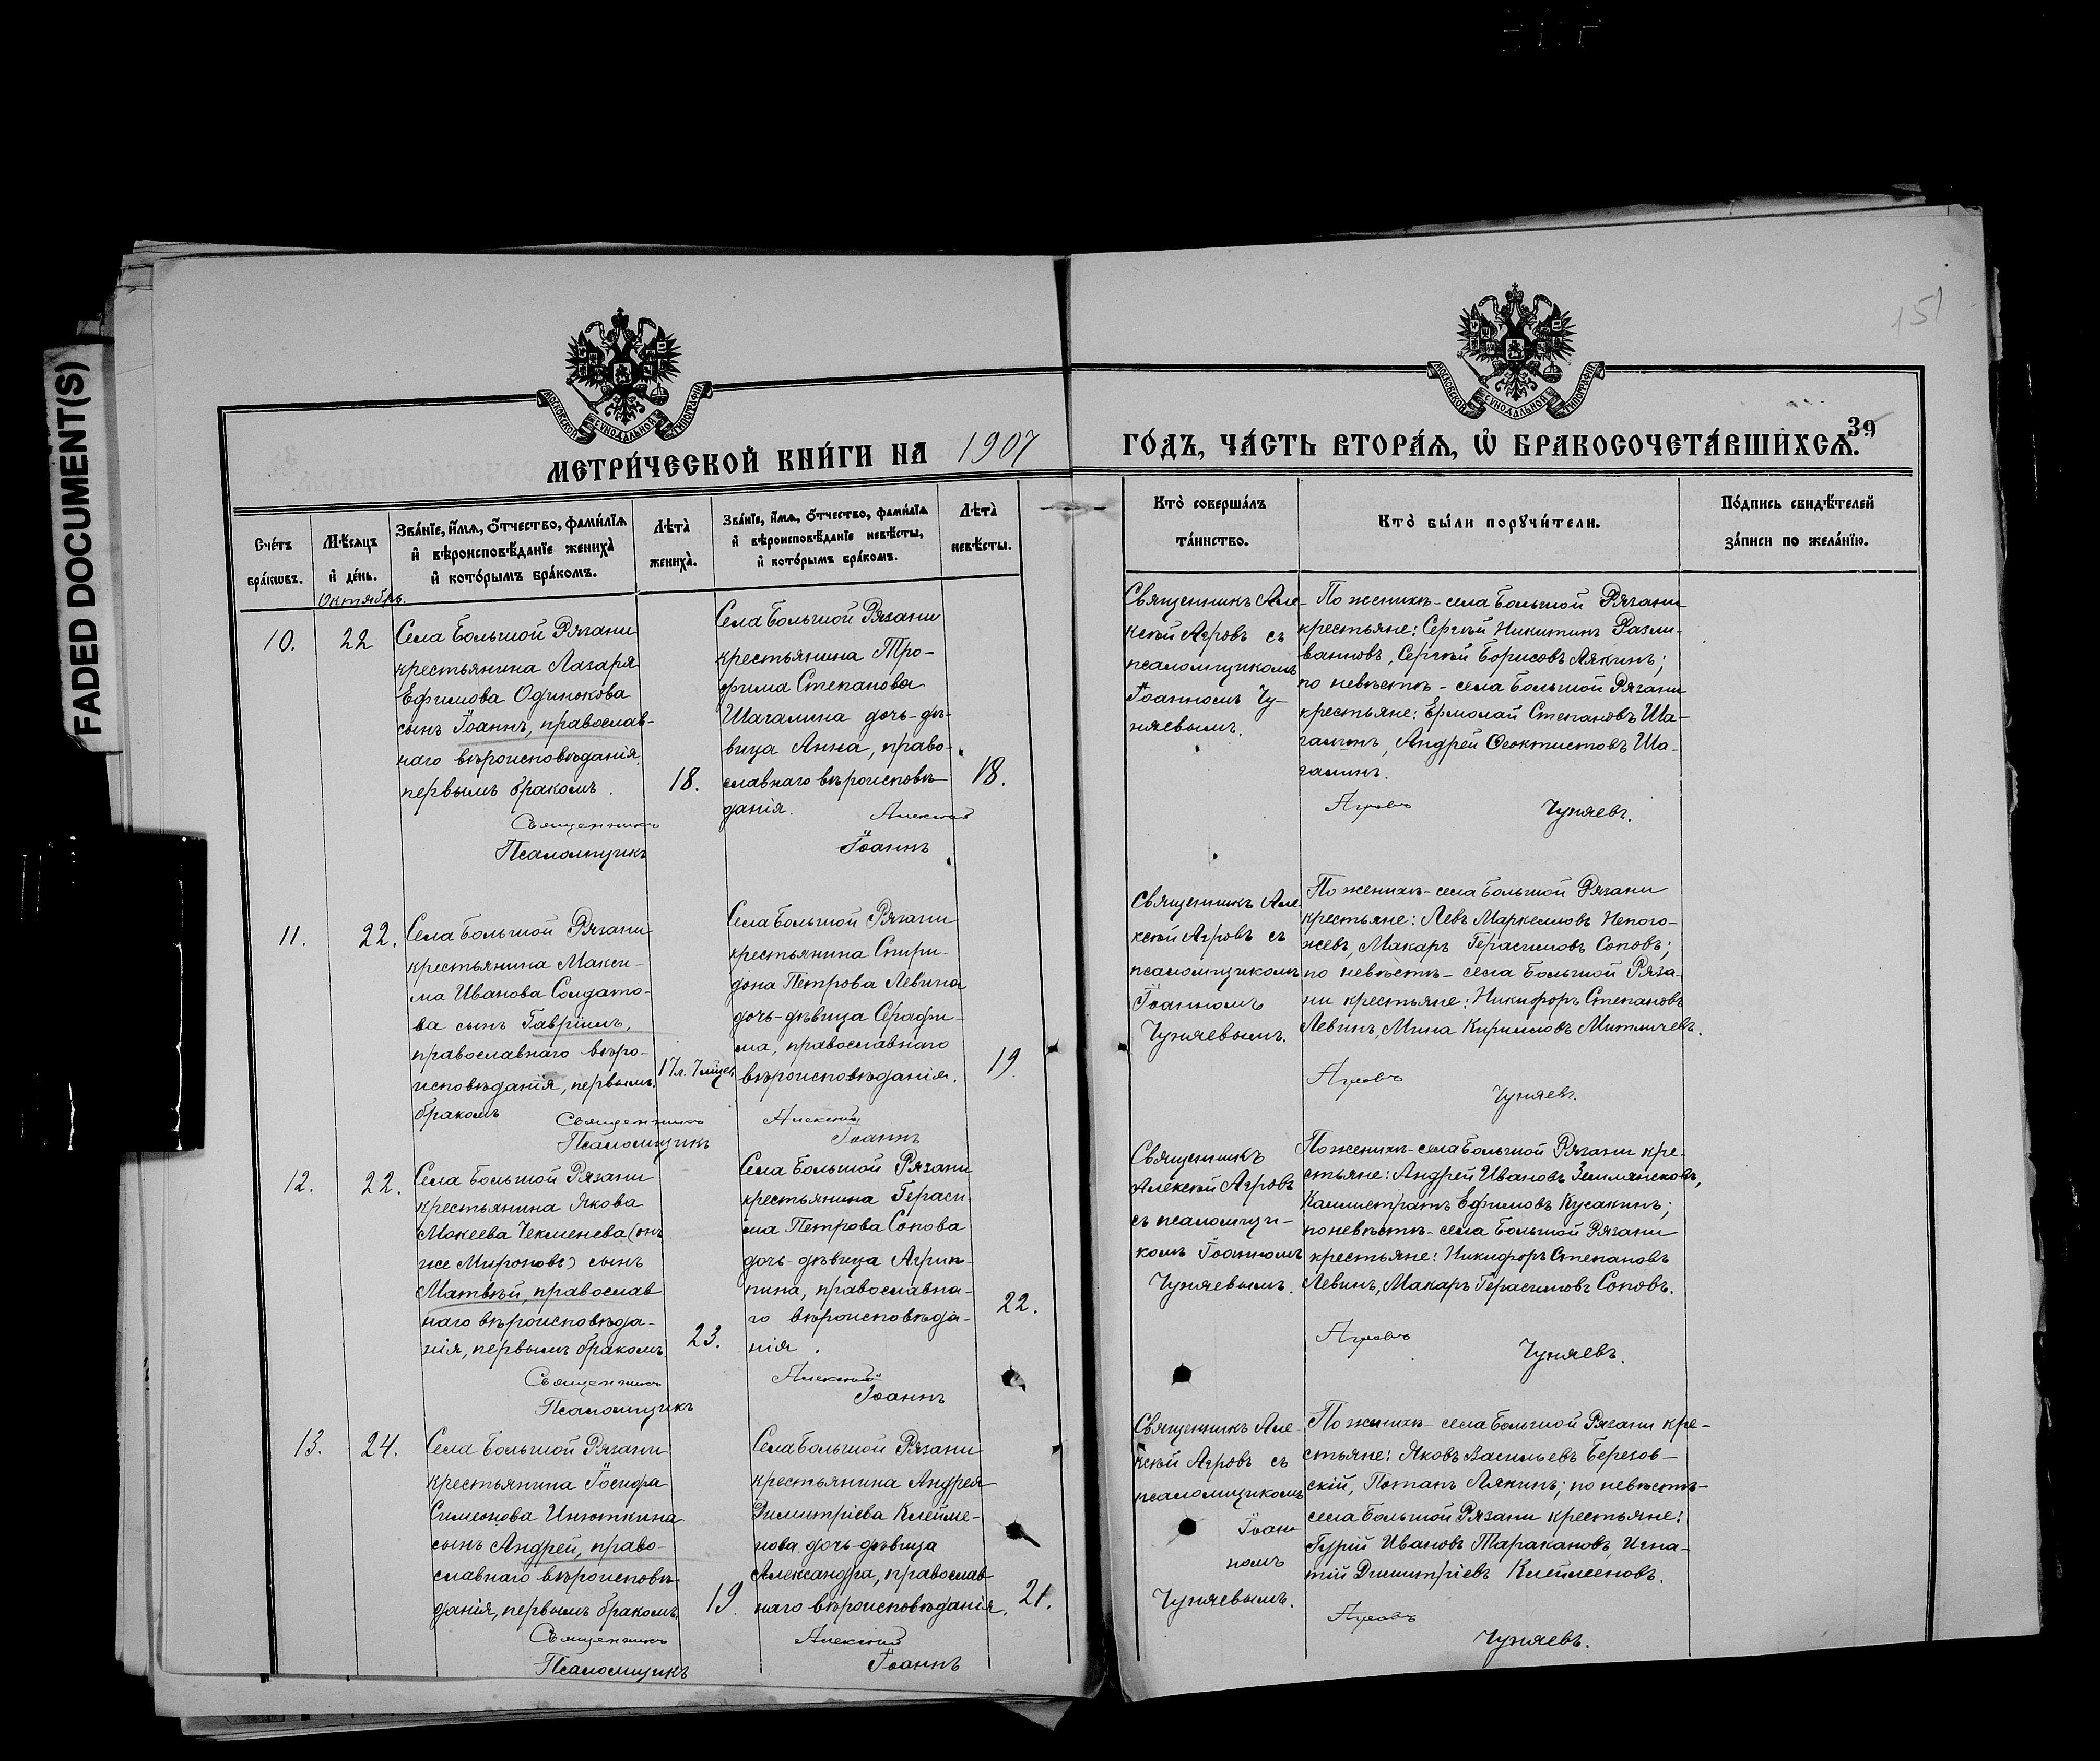 FADED DOCUMENT(S)
151
МОСКОВСКОЙ СУНОДАЛЬНОЙ ТИПОГРАФІИ
МОСКОВСКОЙ СУНОДАЛЬНОЙ ТИПОГРАФІИ
39
МЕТРИ́ЧЕСКОЙ КНИ́ГИ НА 1907 ГО́ДЪ, ЧА́СТЬ ВТОРА́Ѧ, Ѡ҆ БРАКОСОЧЕТА́ВШИХСѦ.
Сче́тъ
бра́кѡвъ.
Мѣ́сѧцъ
и҆ де́нь.
Зва́нїе, и҆́мѧ, ѻ҆́тчество, фами́лїѧ
и҆ вѣроисповѣ́данїе жениха̀
и҆ кото́рымъ бра́комъ.
Лѣта̀
жениха̀.
Зва́нїе, и҆́мѧ, ѻ҆́тчество, фами́лїѧ
и҆ вѣроисповѣ́данїе невѣ́сты,
и҆ кото́рымъ бра́комъ.
Лѣта̀
невѣ́сты.
Кто̀ соверша́лъ
та́инство.
Кто̀ бы́ли порꙋчи́тели.
По́дпись свидѣ́телей
за́писи по жела́нїю.
Октябрь.
10.
22
Села Большой Рязани
крестьянина Лазаря
Ефимова Одинокова
сынъ Іоаннъ, православ-
наго вѣроисповѣданія,
первымъ бракомъ.
18.
Села Большой Рязани
крестьянина Тро-
фима Степанова
Шагалина дочь-дѣ-
вица Анна, право-
славнаго вѣроисповѣ-
данія.
18.
Священникъ Але-
ксѣй Агровъ съ
псаломщикомъ
Іоанномъ Чу-
няевымъ.
По женихѣ-села Большой Рязани
крестьяне: Сергѣй Никитинъ Разли-
вановъ, Сергѣй Борисовъ Лякинъ;
по невѣстѣ-села Большой Рязани
крестьяне: Ермолай Степановъ Ша-
галинъ, Андрей Ѳеоктистовъ Ша-
галинъ.
Священникъ Алексѣй Агровъ
Псаломщикъ Іоаннъ Чуняевъ.
11.
22.
Села Большой Рязани
крестьянина Макси-
ма Иванова Солдато-
ва сынъ Гавріилъ,
православнаго вѣро-
исповѣданія, первымъ
бракомъ
17л. 7мѣцев.
Села Большой Рязани
крестьянина Спири-
дона Петрова Левина
дочь-дѣвица Серафи-
ма, православнаго
вѣроисповѣданія.
19.
Священникъ Але-
ксѣй Агровъ съ
псаломщикомъ
Іоанномъ
Чуняевымъ.
По женихѣ-села Большой Рязани
крестьяне: Левъ Маркелловъ Непого-
жевъ, Макаръ Герасимовъ Соповъ;
по невѣстѣ-села Большой Ряза-
ни крестьяне: Никифоръ Степановъ
Левинъ, Мина Кирилловъ Митличевъ.
Священникъ Алексѣй Агровъ
Псаломщикъ Іоаннъ Чуняевъ.
12.
22.
Села Большой Рязани
крестьянина Якова
Мокеева Чекменева (онъ
же Мироновъ) сынъ
Матвѣй, православ
наго вѣроисповѣда-
нія, первымъ бракомъ.
23.
Села Большой Рязани
крестьянина Гераси-
ма Петрова Сопова
дочь-дѣвица Агрип-
пина, православна-
го вѣроисповѣда-
нія.
22.
Священникъ
Алексѣй Агровъ
съ псаломщи-
комъ Іоанномъ
Чуняевымъ.
По женихѣ-села Большой Рязани кре-
стьяне: Андрей Ивановъ Землянсковъ,
Каллистратъ Ефимовъ Кусакинъ;
по невѣстѣ-села Большой Рязани
крестьяне: Никифоръ Степановъ
Левинъ, Макаръ Герасимовъ Соповъ.
Священникъ Алексѣй Агровъ
Псаломщикъ Іоаннъ Чуняевъ.
13.
24.
Села Большой Рязани
крестьянина Іосифа
Симеонова Инюткина
сынъ Андрей, право-
славнаго вѣроисповѣ-
данія, первымъ бракомъ.
19.
Села Большой Рязани
крестьянина Андрея
Димитріева Клейме-
нова дочь-дѣвица
Александра, православ
наго вѣроисповѣданія.
21.
Священникъ Але-
ксѣй Агровъ съ
псаломщикомъ
Іоан-
номъ
Чуняевымъ.
По женихѣ-села Большой Рязани кре-
стьяне: Яковъ Васильевъ Березов-
скій, Потапъ Лякинъ; по невѣстѣ-
села Большой Рязани крестьяне:
Гурій Ивановъ Таракановъ, Игна-
тій Димитріевъ Клейменовъ.
Священникъ Алексѣй Агровъ
Псаломщикъ Іоаннъ Чуняевъ.